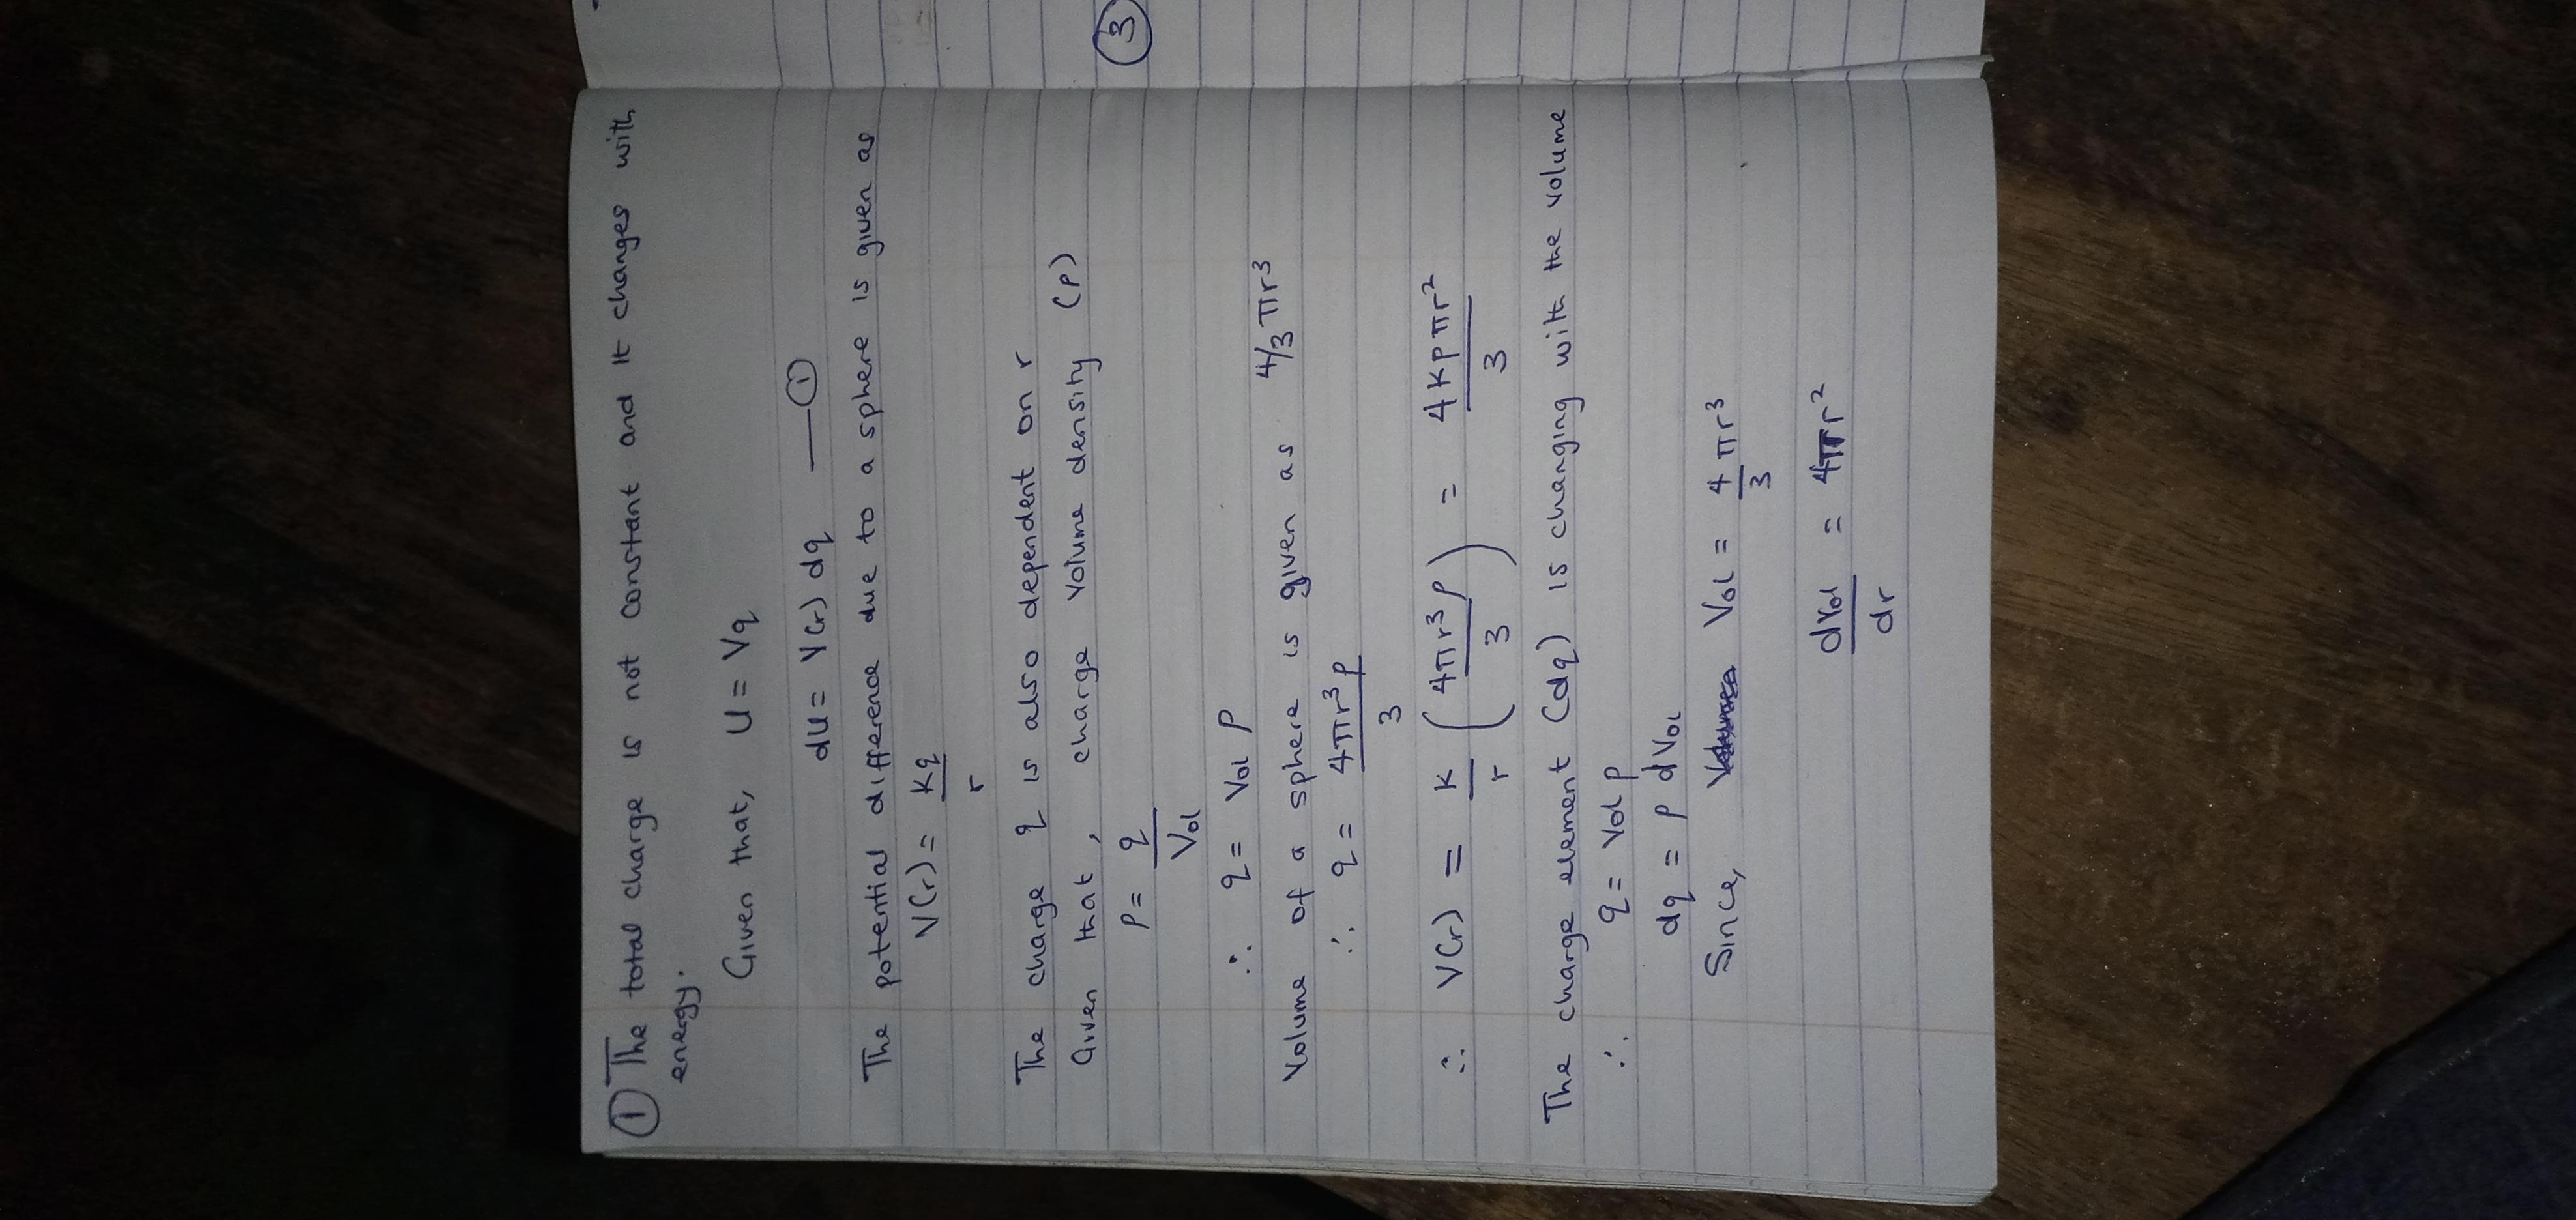 ① The total charge is not constant and it changes with
energy.
Given that, U = Vq
dU = V(r) dq —— ①
The potential difference due to a sphere is given as
V(r) = kq/r
The charge q is also dependent on r
Given that, charge volume density (ρ)
ρ = q/Vol
∴ q = Vol ρ
Volume of a sphere is given as 4/3 πr³
∴ q = 4πr³ρ/3
∴ V(r) = k/r (4πr³ρ/3) = 4kρπr²/3
The charge element (dq) is changing with the volume
∴ q = Vol ρ
dq = ρ dVol
Since, Vol = 4/3 πr³
dVol/dr = 4πr²
③